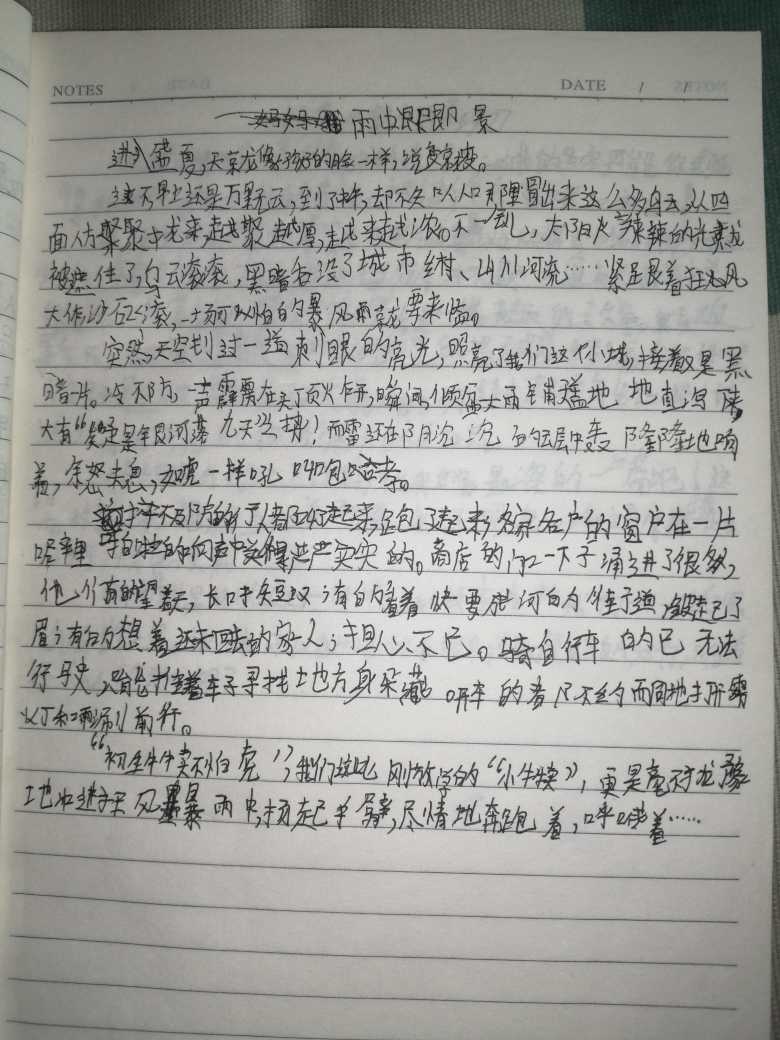 NOTES DATE / /
雨中即景
进入盛夏,天就像孩子的脸一样,说变就变。
这不早上还是万里无云,到了中午,却不知从哪里冒出来这么多乌云,从四
面八方聚集中起来,越聚越厚,越来越浓。不一会儿,太阳火辣辣的光就
被遮住了,乌云滚滚,黑暗吞没了城市乡村、山川河流……紧跟着狂风
大作沙石滚滚,一场可怕的暴风雨就要来临。
突然,天空划过一道刺眼的亮光,照亮了我们这个小城,接着又是黑
暗一片。冷不防,一声霹雳在头顶炸开,瞬间,倾盆大雨铺天盖地地直泻
大有“疑是银河落九天”之势!而雷还在阴沉沉的云层中轰隆隆地响
着,余怒未息,如虎一样吼叫咆哮。
猝不及防的行人都跑了起来,各家各户的窗户在一片
噼里啪啦的响声中关得严严实实的。商店的门口一下子涌进了很多人,
他们有的望着天,长吁短叹;有的看着快要成河的街道,皱起了
眉;有的想着还未回去的家人;担心不已。骑自行车的已无法
行驶,推着车子寻找地方身躲藏。开车的者不约而同地打开雾
灯和雨刷前行。
“初生牛犊不怕虎”,我们这些刚放学的“小牛犊”,更是毫不犹豫
地冲进了狂风暴雨中,扬起手臂,尽情地奔跑着,呼喊着……